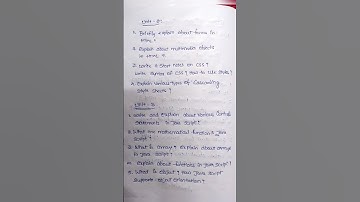 Unit - II
1. Briefly explain about forms in HTML ?
2. Explain about multimedia objects in HTML ?
3. Write a short notes on CSS ?
Write syntax of CSS ? How to use styles ?
4. Explain various types of Cascading Style Sheets ?
Unit - III
1. Write and Explain about various control Statements in Java Script ?
2. What are mathematical functions in Java Script ?
3. What is array ? Explain about arrays in Java Script ?
4. Explain about functions in Java Script ?
5. What is object ? How Java Script Supports object orientation ?